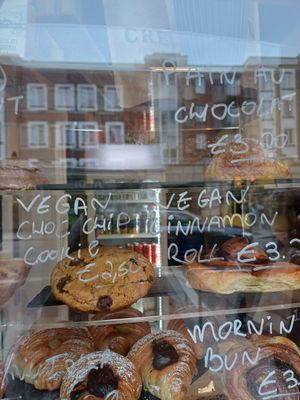 PAIN AU
CHOCOLAT
£3.00
VEGAN
CHOC CHIP
COOKIE
£2,50
VEGAN
CINNAMON
ROLL £3.
MORNIN
BUN
£3